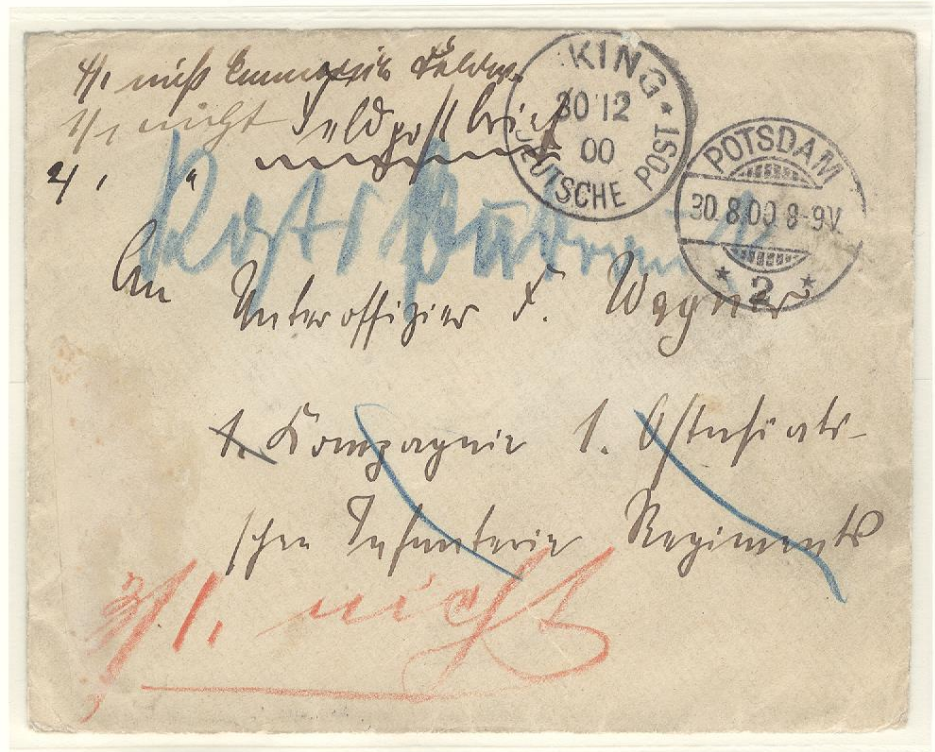 4/1 nicht
1/1 nicht Feldpostbrief
2/1 "
KING
30 12
00
DEUTSCHE POST
POTSDAM
30.8.00 8-9V.
* 2 *
An
Unteroffizier F. Wagner
1. Kompagnie 1. Ostasiati-
schen Infanterie Regiments
3/1. nicht